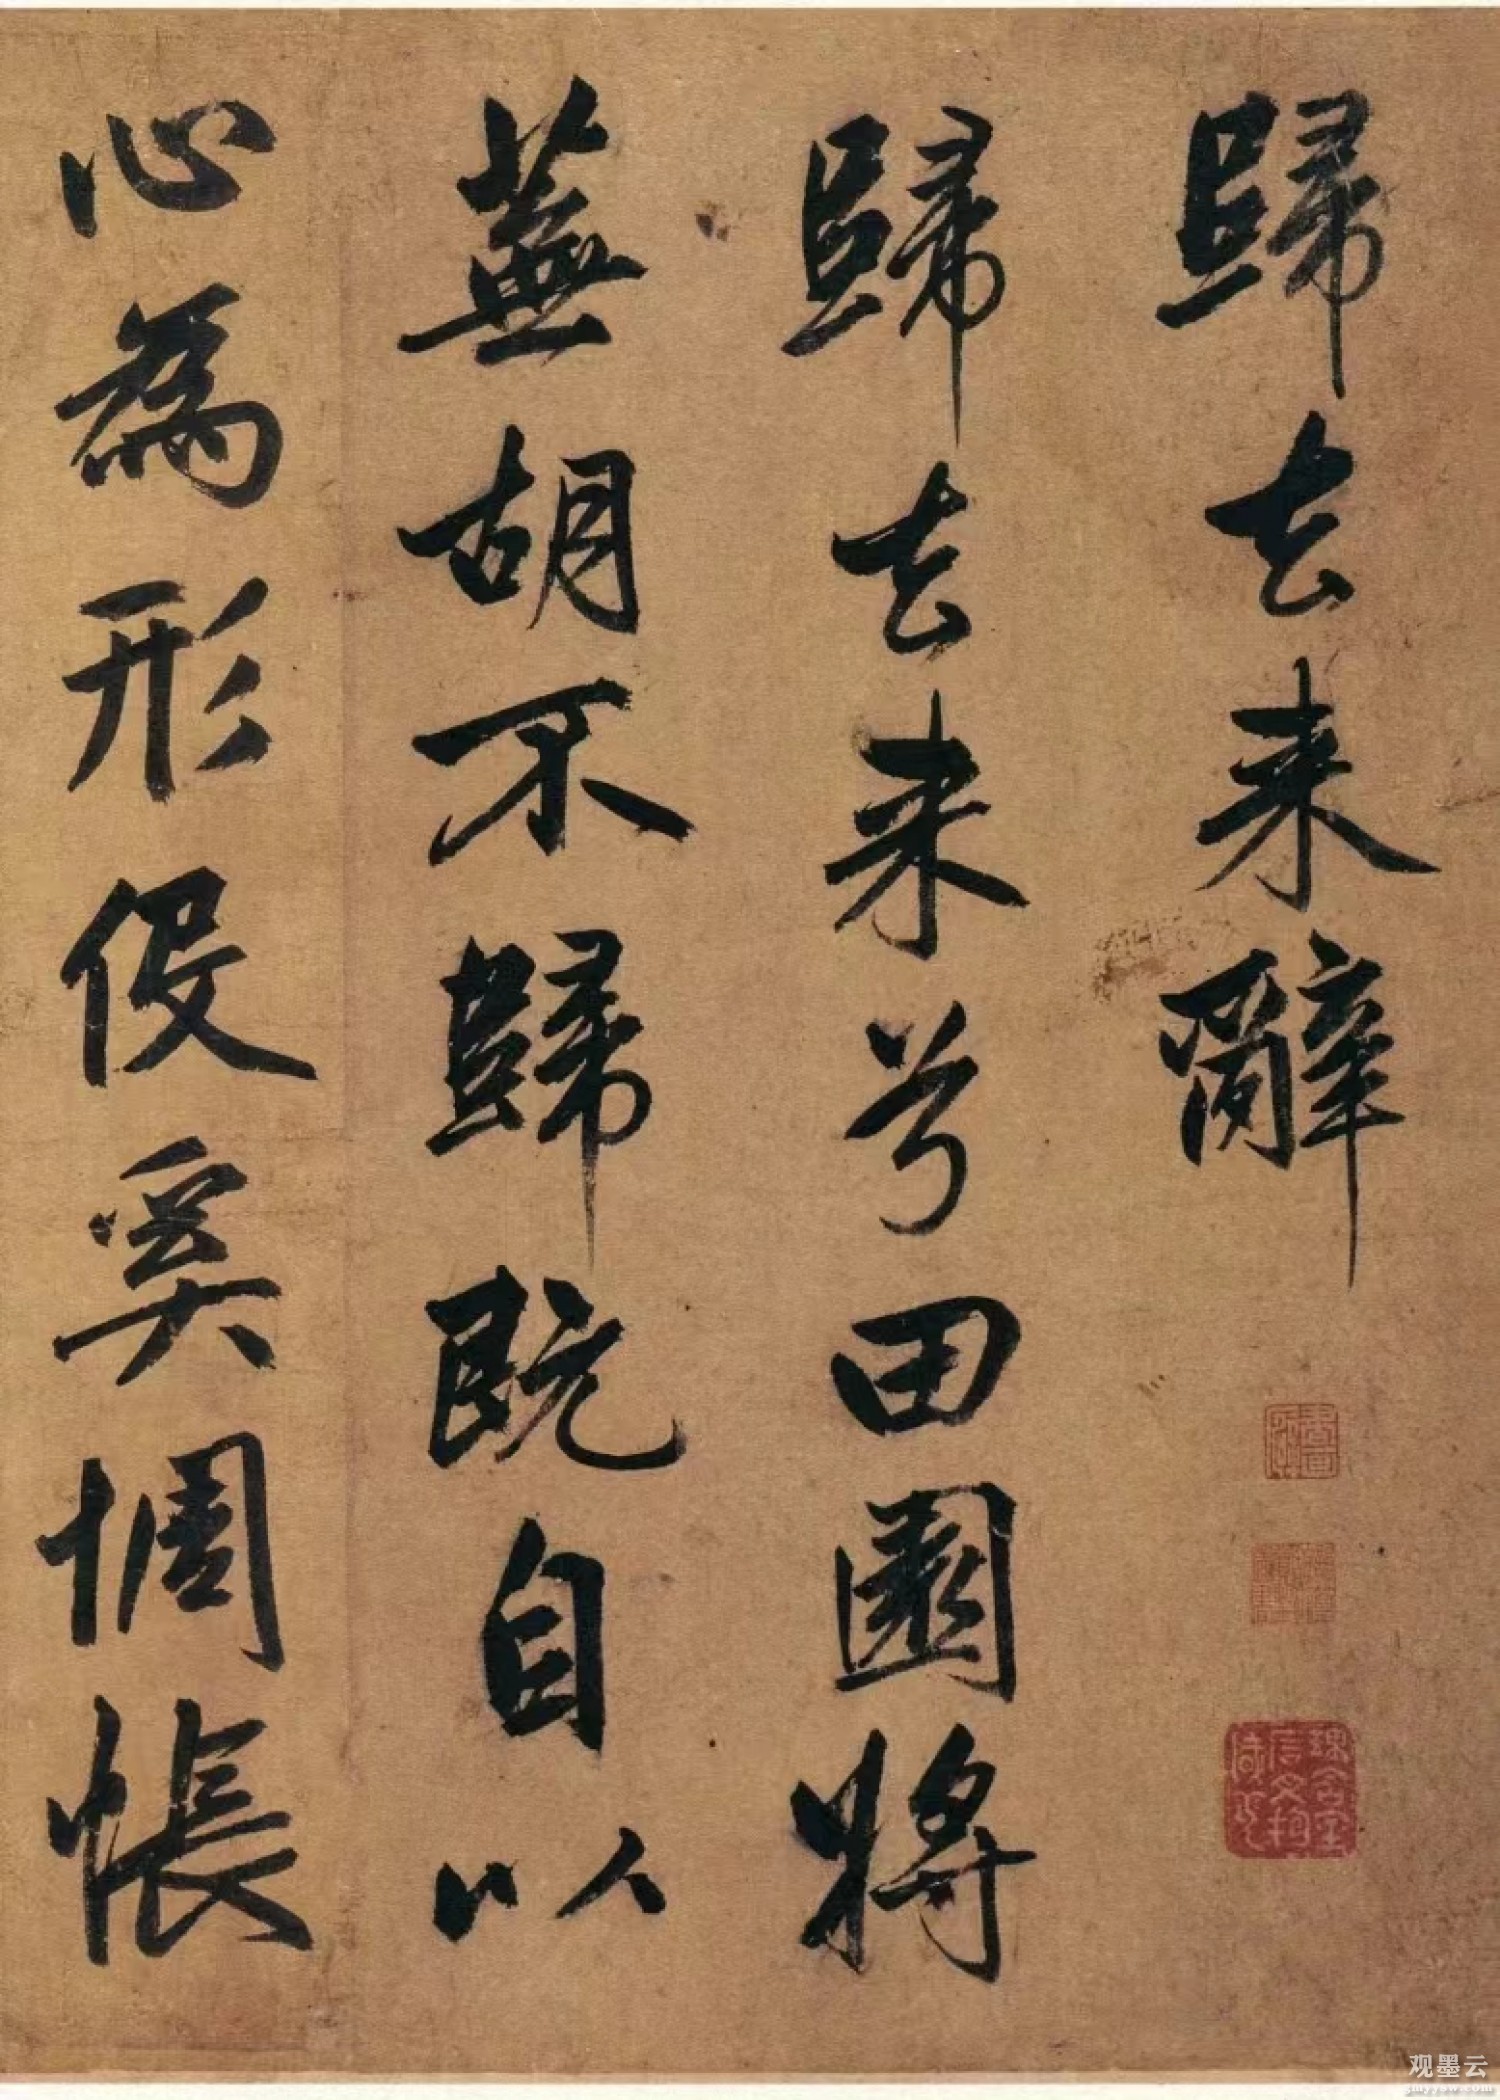 歸去来辭
歸去来兮田園將
蕪胡不歸既自以
心為形役奚惆悵
观墨云